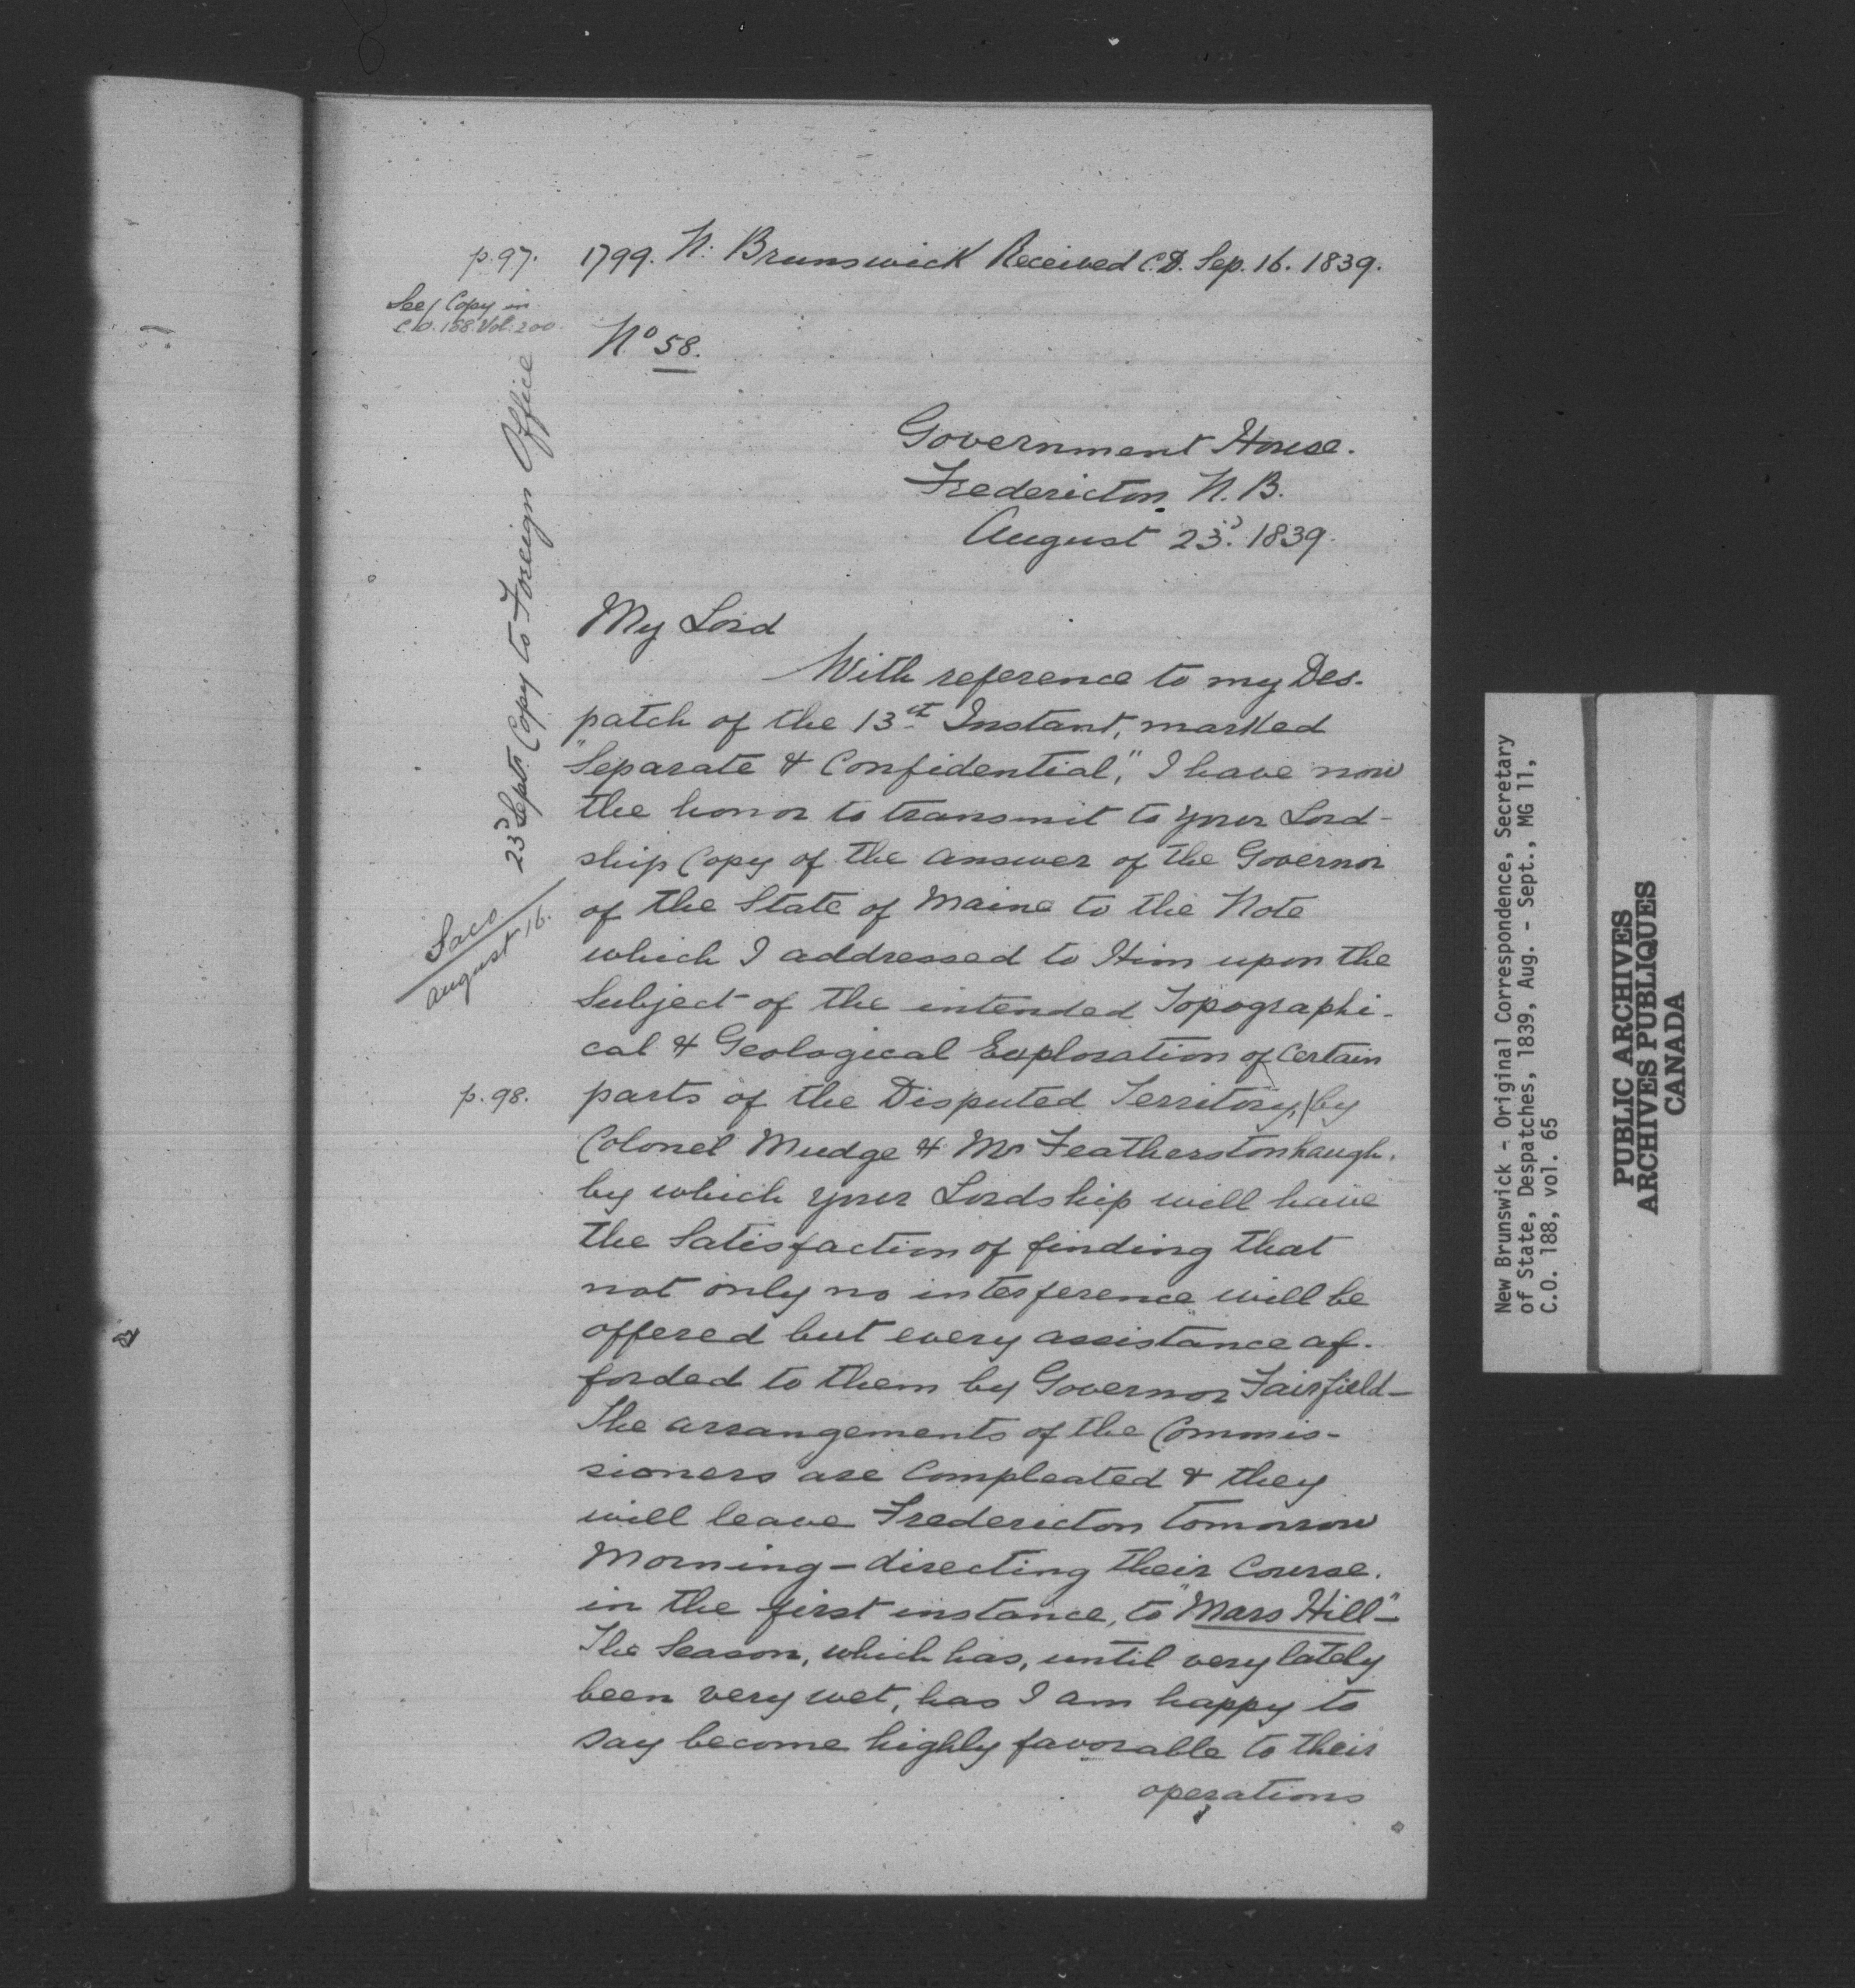 p.97. 1799. N. Brunswick Received C.D. Sep. 16. 1839.
See/ Copy in
C.O. 188. Vol. 200.
No 58.
23d Sept. Copy to Foreign Office
Government House.
Fredericton. N.B.
August 23d. 1839.
My Lord
With reference to my Des-
patch of the 13th Instant, marked
"Separate & Confidential," I have now
the honor to transmit to your Lord-
ship Copy of the answer of the Governor
Saco
August 16.
of the State of Maine to the Note
which I addressed to Him upon the
Subject of the intended Topographi-
cal & Geological Exploration of Certain
p. 98. parts of the Disputed Territory,/by
Colonel Mudge & Mr Featherstonhaugh.
by which your Lordship will have
the Satisfaction of finding that
not only no interference will be
offered but every assistance af-
forded to them by Governor Fairfield—
The arrangements of the Commis-
sioners are Compleated & they
will leave Fredericton tomorrow
Morning—directing their Course.
in the first instance, to "Mars Hill"—
The Season, which has, until very lately
been very wet, has I am happy to
say become highly favorable to their
operations
New Brunswick - Original Correspondence, Secretary
of State, Despatches, 1839, Aug. - Sept., MG 11,
C.O. 188, vol. 65
PUBLIC ARCHIVES
ARCHIVES PUBLIQUES
CANADA